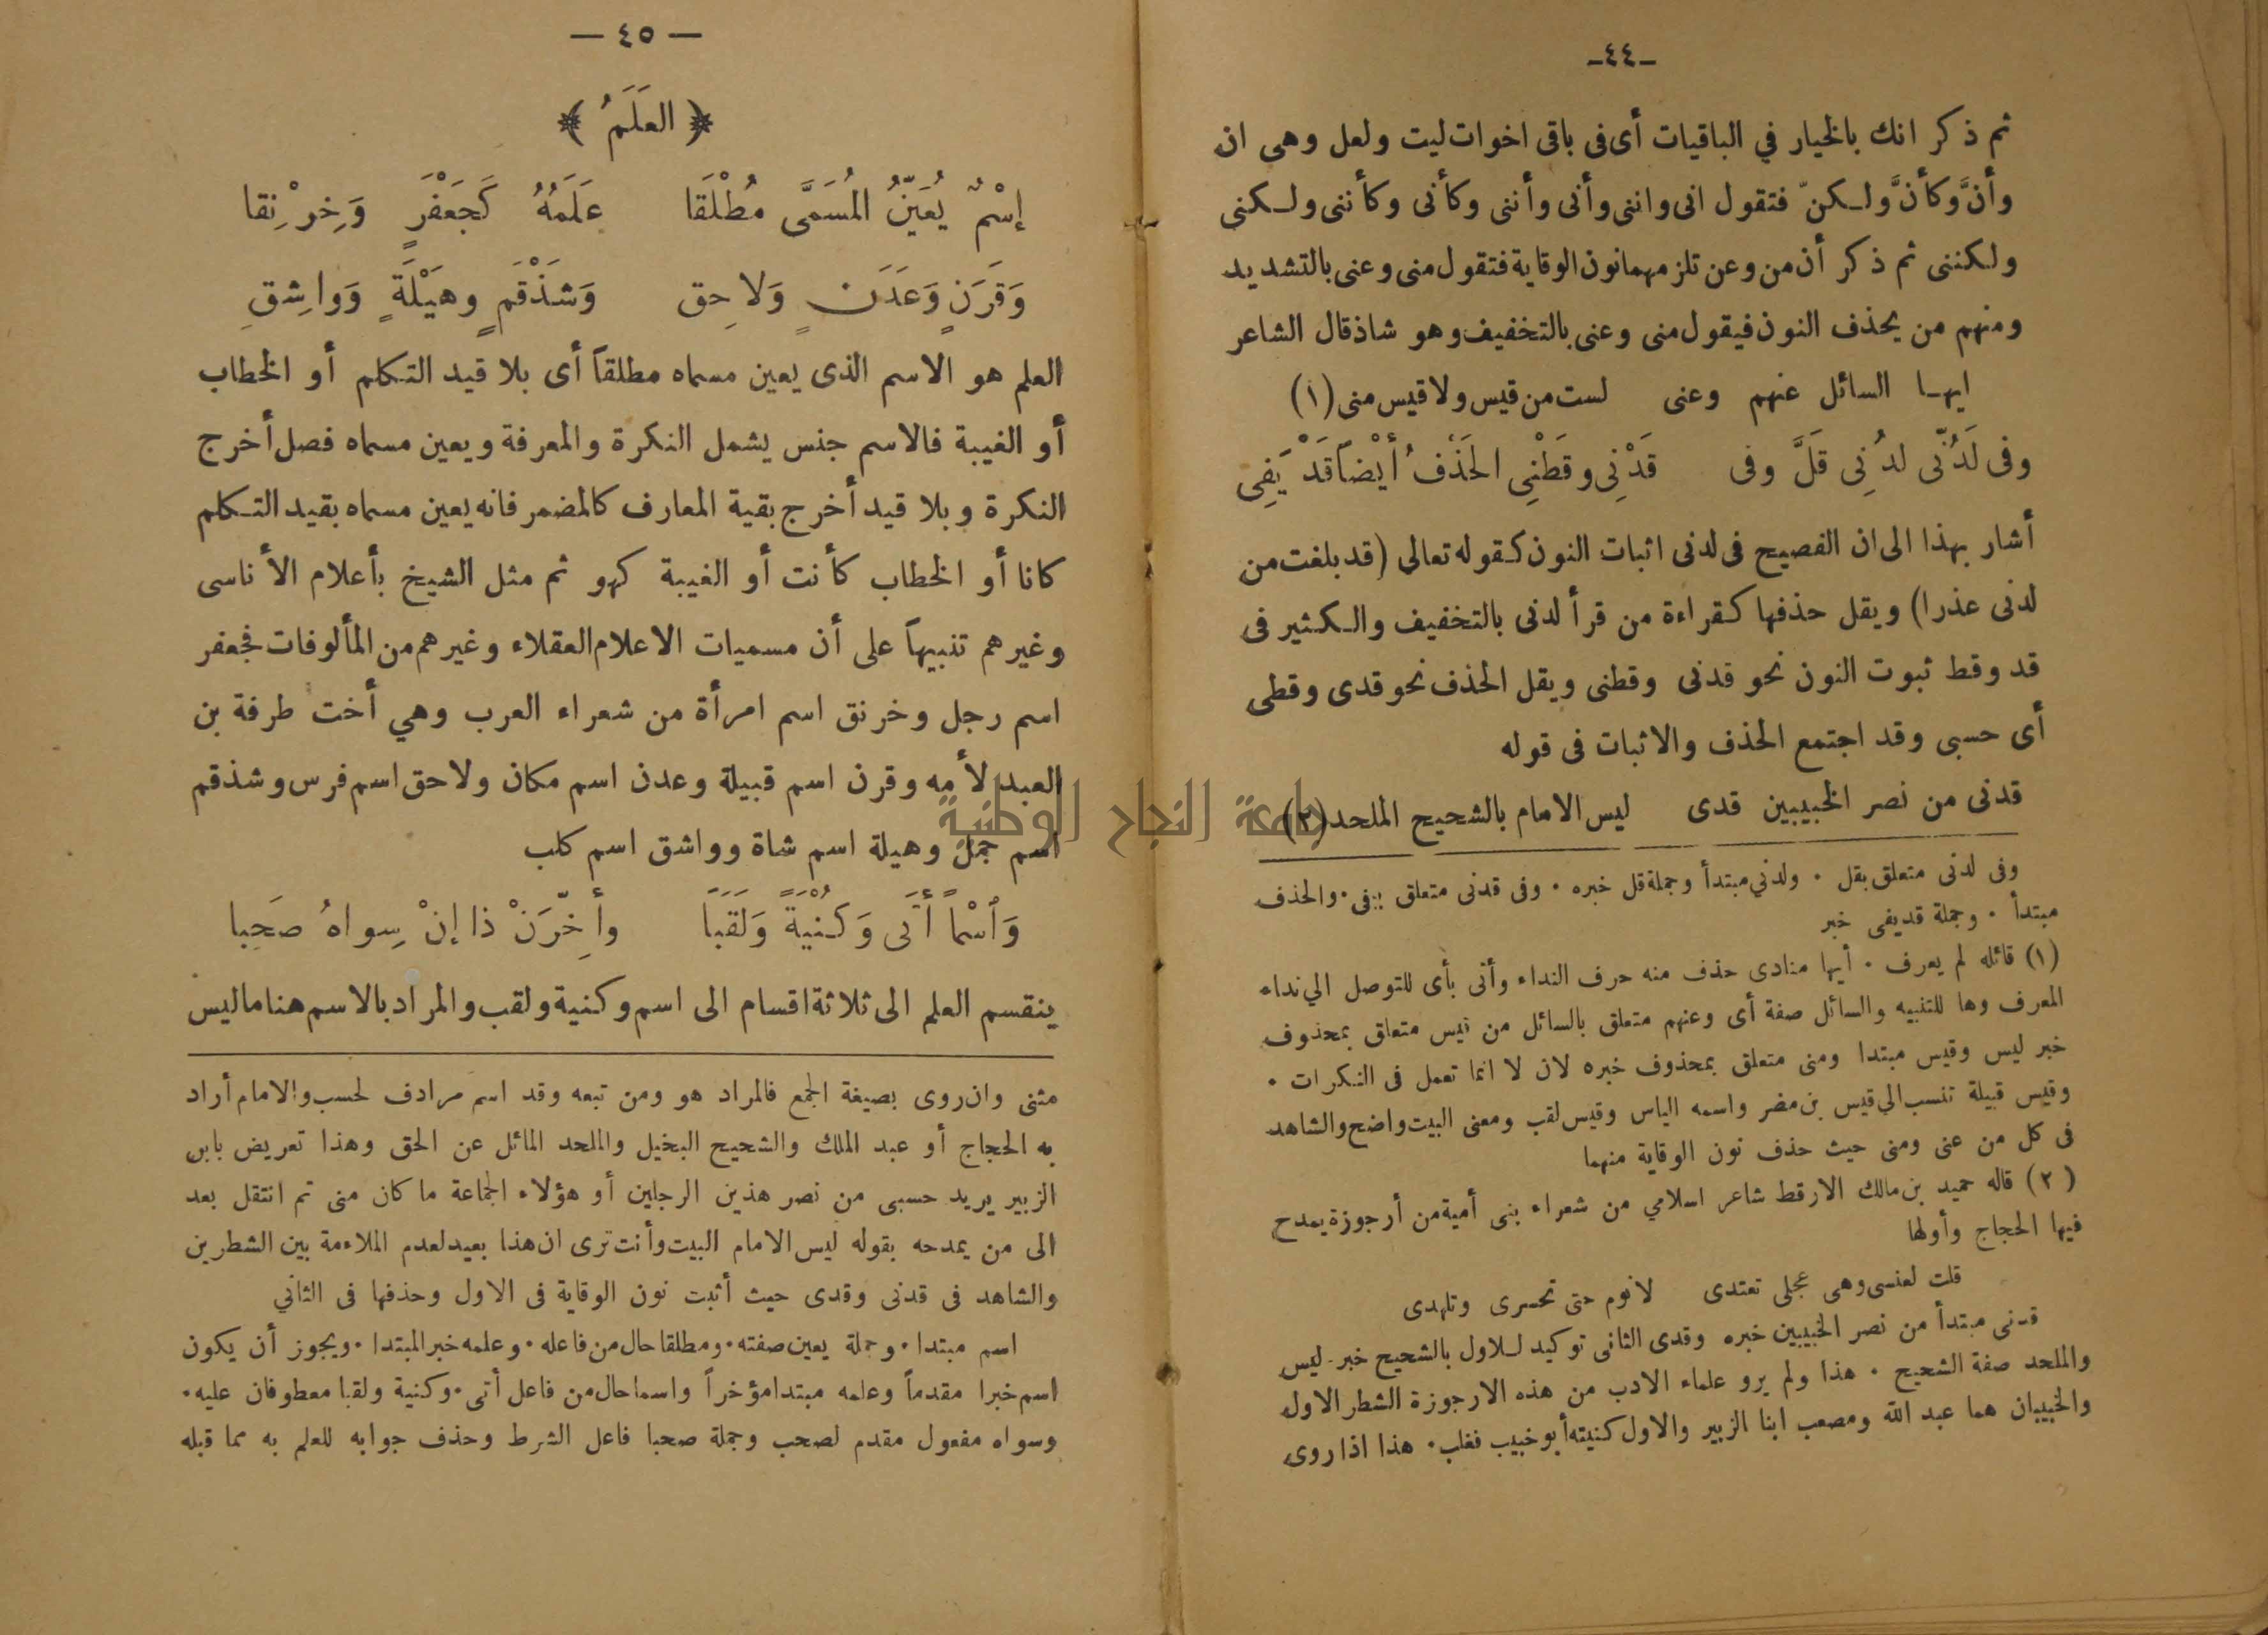 ـ٤٤ـ
ثم ذكر انك بالخيار في الباقيات أى فى باقى اخوات ليت ولعل وهى ان
وأنَّ وكأنَّ ولكنّ فتقول انى واننى وأنى وأننى وكأنى وكأننى ولكنى
ولكننى ثم ذكر أن من وعن تلزمهما نون الوقاية فتقول منى وعنى بالتشديد
ومنهم من يحذف النون فيقول منى وعنى بالتخفيف وهو شاذ قال الشاعر
ايها السائل عنهم وعنى لست من قيس ولا قيس منى (١)
وفى لَدُنّى لدُنِى قَلَّ وفى قَدْنِى وقطْنِى الحَذْفُ أيْضاً قَدْ يَفِى
أشار بهذا الى ان الفصيح فى لدنى اثبات النون كقوله تعالى (قد بلغت من
لدنى عذرا) ويقل حذفها كقراءة من قرأ لدنى بالتخفيف والكثير فى
قد وقط ثبوت النون نحو قدنى وقطنى ويقل الحذف نحو قدى وقطى
أى حسبى وقد اجتمع الحذف والاثبات فى قوله
قدنى من نصر الخبيبين قدى ليس الامام بالشحيح الملحد (٢)
وفى لدنى متعلق بقل ٠ ولدني مبتدأ وجملة قل خبره ٠ وفى قدنى متعلق بيفى ٠ والحذف
مبتدأ ٠ وجملة قد يفى خبر
(١) قائله لم يعرف ٠ أيها منادى حذف منه حرف النداء وأتى بأى للتوصل الي نداء
المعرف وها للتنبيه والسائل صفة أى وعنهم متعلق بالسائل من قيس متعلق بمحذوف
خبر ليس وقيس مبتدا ومنى متعلق بمحذوف خبره لان لا انما تعمل فى النكرات ٠
وقيس قبيلة تنسب الي قيس بن مضر واسمه الياس وقيس لقب ومعنى البيت واضح والشاهد
فى كل من عنى ومنى حيث حذف نون الوقاية منهما
(٢) قاله حميد بن مالك الارقط شاعر اسلامي من شعراء بنى أمية من أرجوزة يمدح
فيها الحجاج وأولها
قلت لعنسى وهى عجلى تعتدى لا نوم حتى تحسرى وتلهدى
قدنى مبتدأ من نصر الخبيبين خبره وقدى الثانى توكيد للاول بالشحيح خبر ليس
والملحد صفة الشحيح ٠ هذا ولم يرو علماء الادب من هذه الارجوزة الشطر الاول
والخبيبان هما عبد الله ومصعب ابنا الزبير والاول كنيته أبو خبيب فغلب ٠ هذا اذا روى
— ٤٥ —
﴿ العَلَمُ ﴾
إسْمٌ يُعَيّنُ المُسَمَّى مُطْلَقَا عَلَمُهُ كَجَعْفَرٍ وَخِرْنِقا
وَقَرَنٍ وَعَدَنٍ وَلاحِقِ وَشَذْقَمٍ وهَيْلَةٍ وَواشِقِ
العلم هو الاسم الذى يعين مسماه مطلقاً أى بلا قيد التكلم أو الخطاب
أو الغيبة فالاسم جنس يشمل النكرة والمعرفة ويعين مسماه فصل أخرج
النكرة وبلا قيد أخرج بقية المعارف كالمضمر فانه يعين مسماه بقيد التكلم
كانا أو الخطاب كأنت أو الغيبة كهو ثم مثل الشيخ بأعلام الأناسى
وغيرهم تنبيهاً على أن مسميات الاعلام العقلاء وغيرهم من المألوفات فجعفر
اسم رجل وخرنق اسم امرأة من شعراء العرب وهي أخت طرفة بن
العبد لأمه وقرن اسم قبيلة وعدن اسم مكان ولاحق اسم فرس وشذقم
اسم جمل وهيلة اسم شاة وواشق اسم كلب
وَٱسْماً أَتَى وَكُنْيَةً وَلَقَبَا وأخِّرَنْ ذا إنْ سِواهُ صَحِبا
ينقسم العلم الى ثلاثة اقسام الى اسم وكنية ولقب والمراد بالاسم هنا ما ليس
مثنى وان روى بصيغة الجمع فالمراد هو ومن تبعه وقد اسم مرادف لحسب والامام أراد
به الحجاج أو عبد الملك والشحيح البخيل والملحد المائل عن الحق وهذا تعريض بابن
الزبير يريد حسبى من نصر هذين الرجلين أو هؤلاء الجماعة ما كان منى ثم انتقل بعد
الى من يمدحه بقوله ليس الامام البيت وأنت ترى ان هذا بعيد لعدم الملاءمة بين الشطرين
والشاهد فى قدنى وقدى حيث أثبت نون الوقاية فى الاول وحذفها فى الثاني
اسم مبتدا ٠ وجملة يعين صفته ٠ ومطلقا حال من فاعله ٠ وعلمه خبر المبتدا ٠ ويجوز أن يكون
اسم خبرا مقدماً وعلمه مبتدا مؤخراً واسما حال من فاعل أتى ٠ وكنية ولقبا معطوفان عليه ٠
وسواه مفعول مقدم لصحب وجملة صحبا فاعل الشرط وحذف جوابه للعلم به مما قبله
جامعة النجاح الوطنية